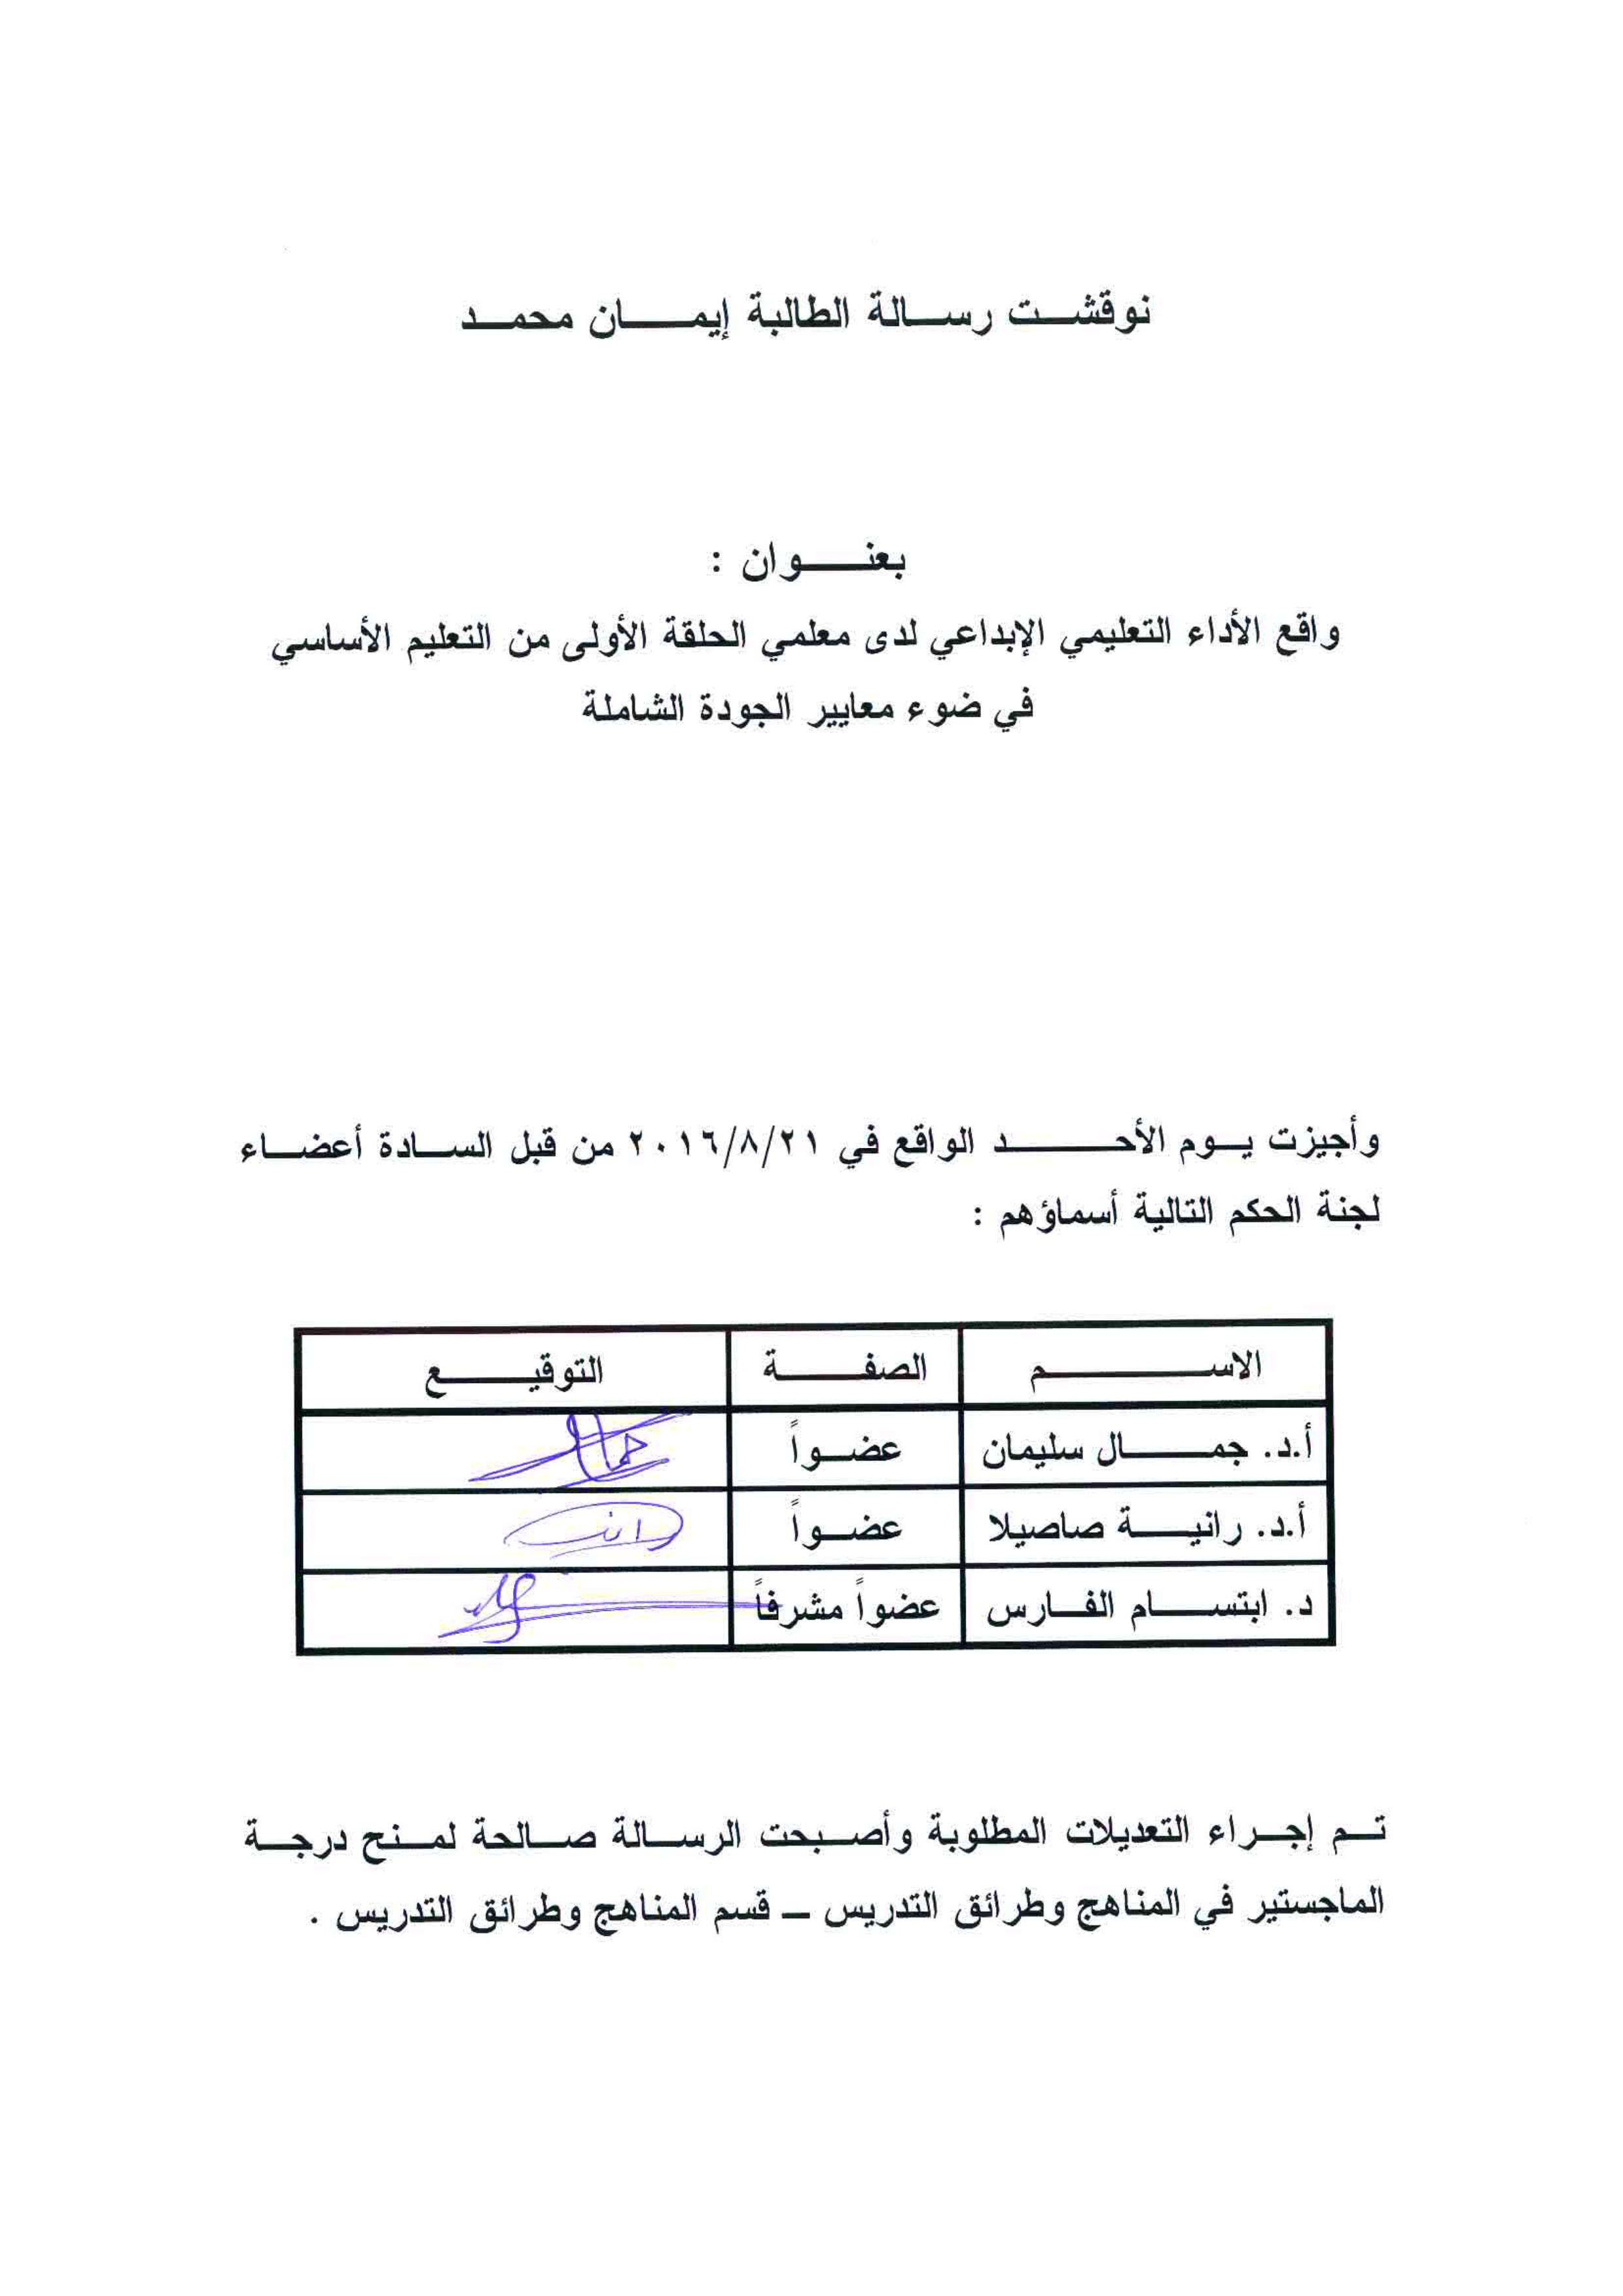 نوقشت رسالة الطالبة إيمان محمد
بعنوان :
واقع الأداء التعليمي الإبداعي لدى معلمي الحلقة الأولى من التعليم الأساسي
في ضوء معايير الجودة الشاملة
وأجيزت يوم الأحد الواقع في ٢٠١٦/٨/٢١ من قبل السادة أعضاء
لجنة الحكم التالية أسماؤهم :
الاسم الصفة التوقيع
أ.د. جمال سليمان عضواً
أ.د. رانية صاصيلا عضواً
د. ابتسام الفارس عضواً مشرفاً
تم إجراء التعديلات المطلوبة وأصبحت الرسالة صالحة لمنح درجة
الماجستير في المناهج وطرائق التدريس – قسم المناهج وطرائق التدريس .